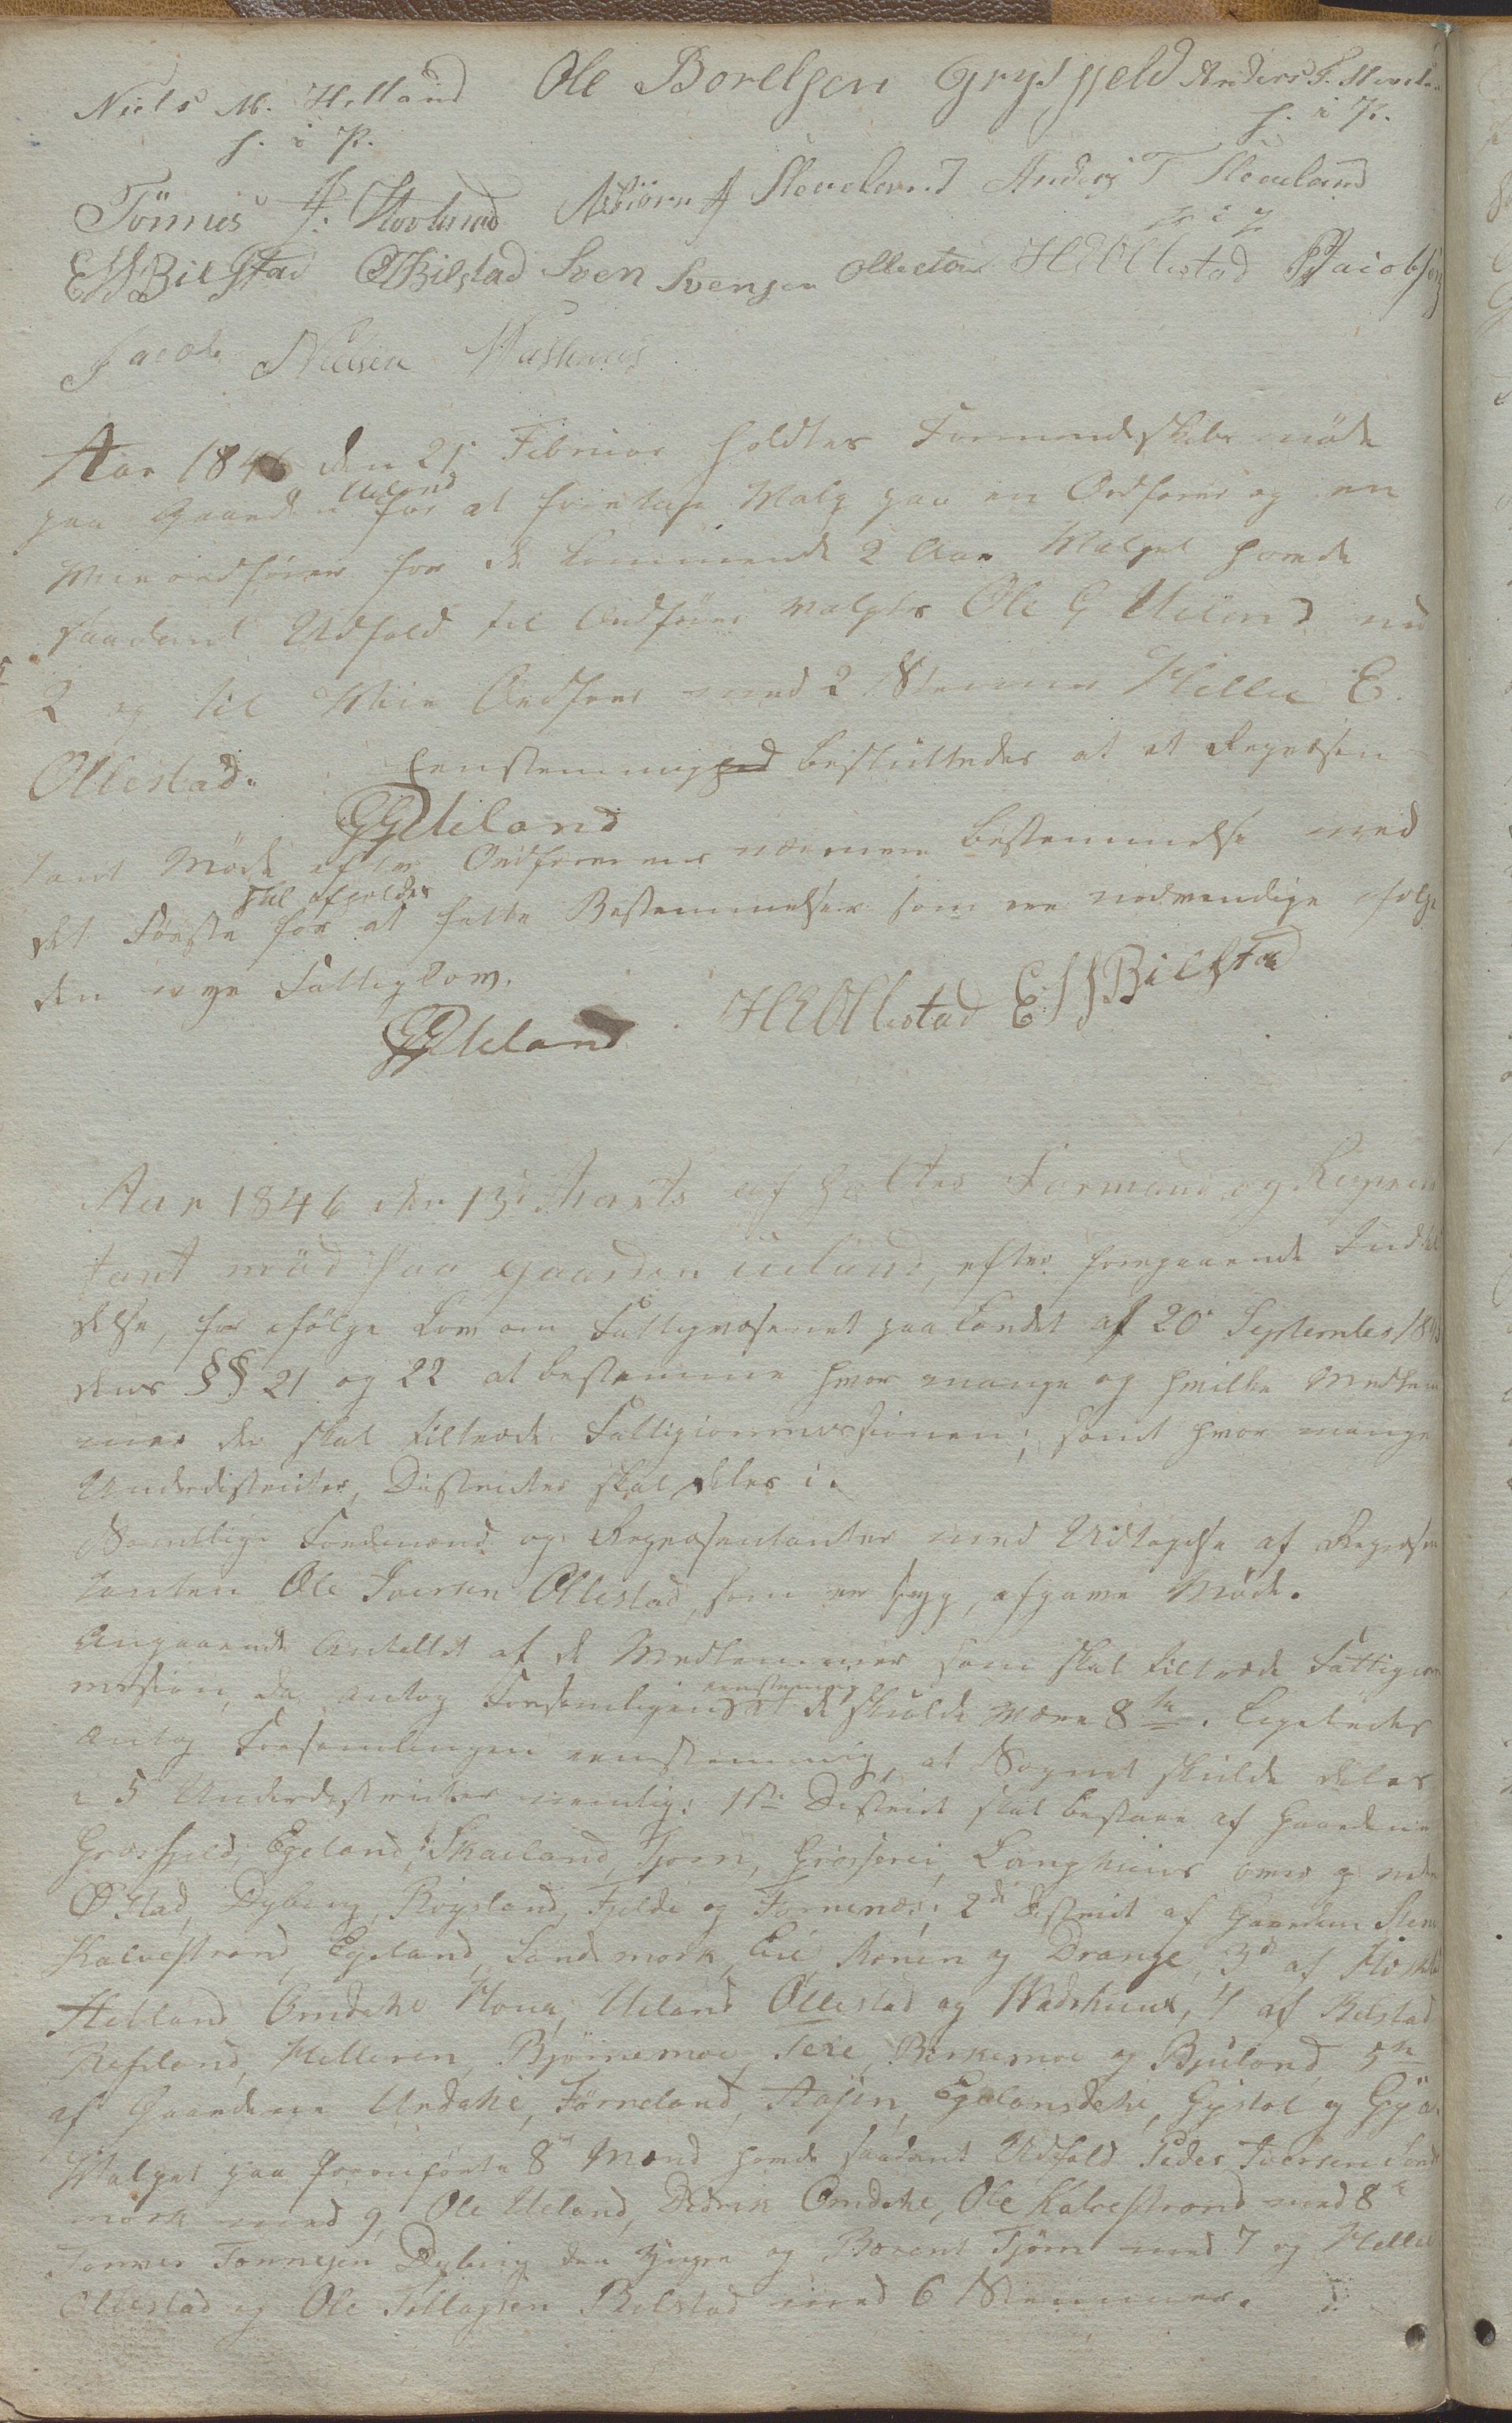 Niels M. Helland Ole Borelsen Grysfjeld Anders T.
h. i P. h. i P.
Tönnes J. Hovland Asbiörn A Sleveland Anders T Sleveland
E S S Bilstad O T Bilstad Sven Svensen H E Ollestad P Jacobsen
Jacob Nielsen
Aar 1846 den 21 Februar holdtes Formandskabs møde
paa Gaard Ueland for at foretage Valg paa en Ordfører og en
Viceordfører for de kommende 2 Aar Valget havde
saadant Udfald til Ordfører valgtes Ole G Ueland med
2 og til Vice Ordfører med 2 Stemmer Helleu E.
Ollestad. Eenstemmighed besluttedes at et Repræsen-
O G Ueland
tant Møde efter Ordførerens nærmere bestemmelse med
skal afholdes
det Første for at fatte Bestemmelser som ere nødvendige ifølge
den nye Fattiglov.
O G Ueland H E Ollestad E S S Bilstad
Aar 1846 den 13de Marts afholdtes Formand og Repræsen
tant møde paa gaarden Ueland, efter foregaaende Indkal
delse, for ifølge Lov om Fattigvæsenet paa Landet af 20 September 1845
dens §§ 21 og 22 at bestemme hvor mange og hvilke Medlem
mer der skal tiltræde Fattigcommissionen; samt hvor mange
Underdistricter, Districtet skal deles i.
Samtlige Formænd og Repræsentanter med Undtagelse af Repræsen
tanten Ole Iversen Ollestad, som er syg, afgave Møde.
Angaaende Antallet af de Medlemmer som skal tiltræde Fattigcom
mission, da antog Forsamlingen eenstemmig at de skulde være 8te. Ligeledes
antog Forsamlingen eenstemmig, at Sognet skulde deles
i 5 Underdistricter nemlig: 1ste District skal bestaae af Gaardene
Grøsfjeld, Egeland, Skailand, Tjorn, Langhuus over og neder
Østad, Dybing, Røysland, Fjelde og 2de District af Gaardene
Kalvestrand, Egeland, Sandsmork, Eie, Ronen og Drange, 3d af
Helland Omdahl Hove, Ueland Ollestad og Wadshuus, 4 af Bilstad
Refsland, Helleren, Bjørnemoe, Birkemoe og Bjuland, 5te
af Gaardene Undahl, Førneland, Aasen, Egelandsdahl, Gystøl og Gya.
Valget paa foromførte 8te Mænd havde saadant Udfald Peder Iversen Sands
mork med 9, Ole Ueland, Didrik Omdahl, Ole Kalvestrand med 8te
Tønnes Tønnesen Dybing den yngre og Borent Tjörn med 7 og Helleu
Ollestad og Ole Tollagsen Bilstad med 6 Stemmer.